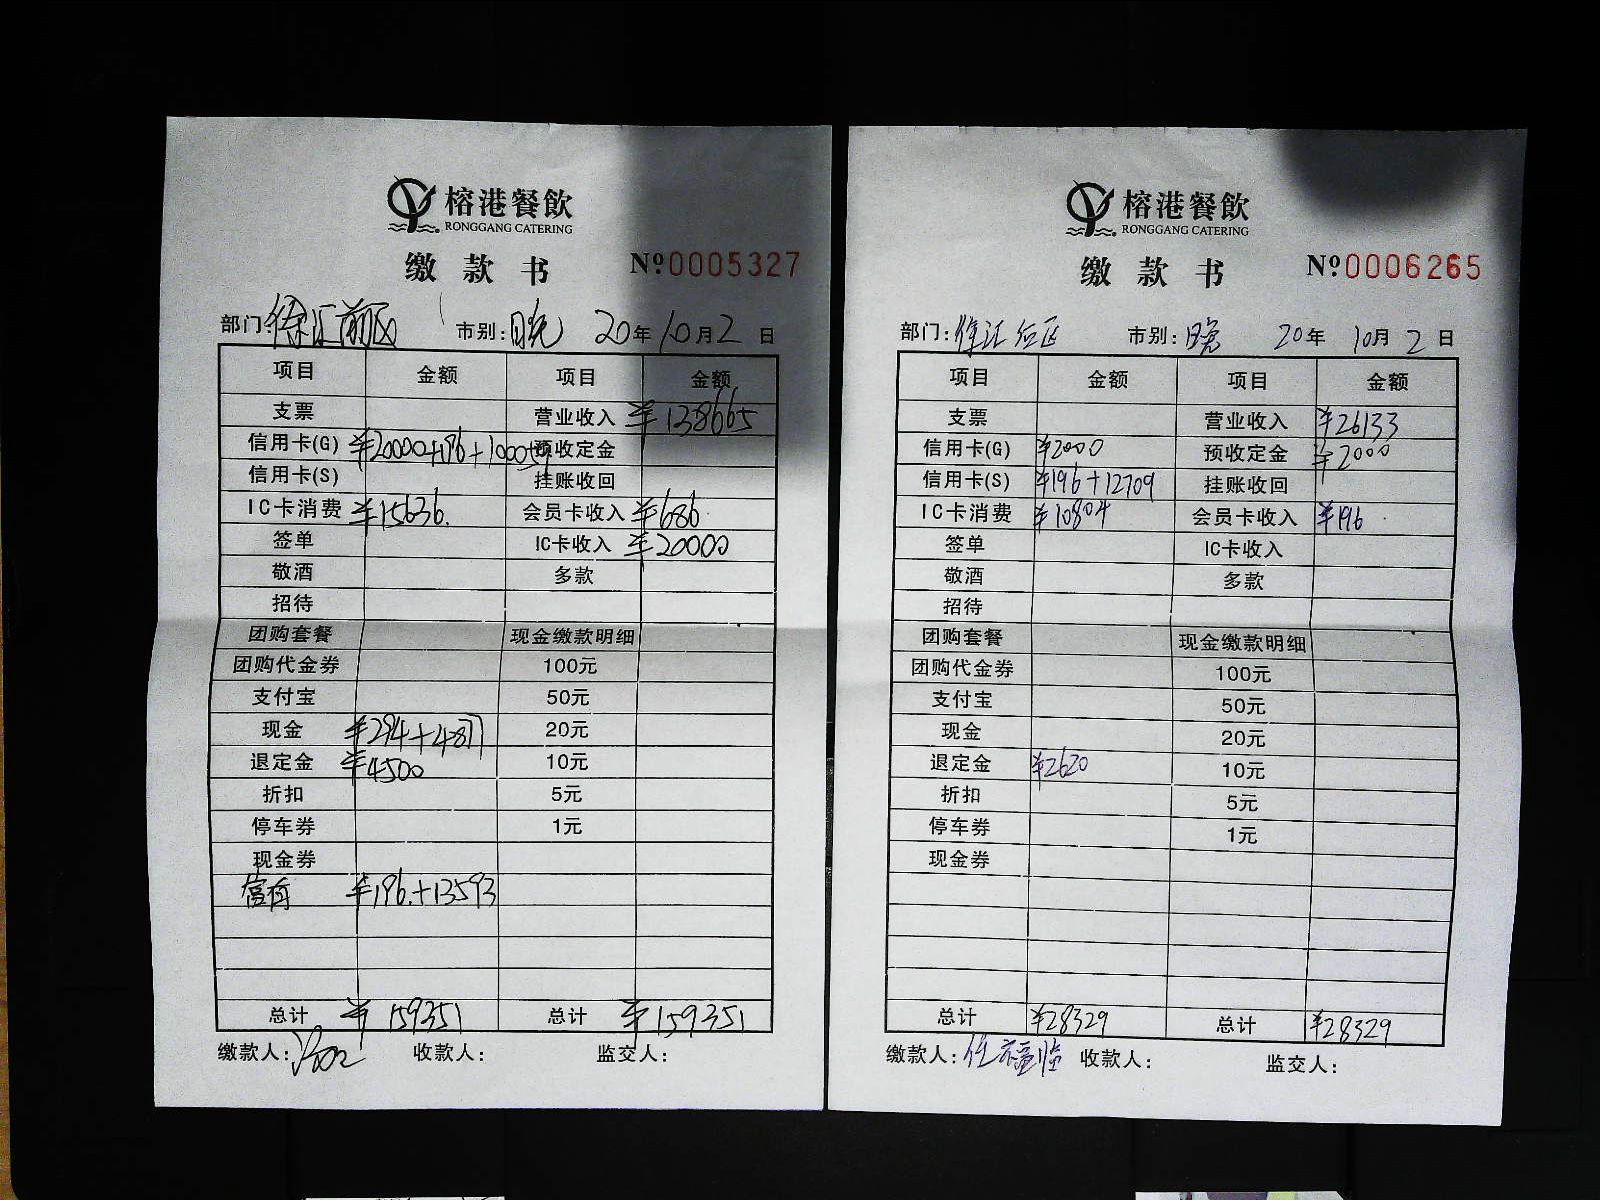 榕港餐飲
RONGGANG CATERING
缴款书 Nº0005327
部门:徐汇前区 市别:晚 20年10月2日
项目 金额 项目 金额
支票 营业收入 ¥138665
信用卡(G) ¥20000+196+10005 预收定金
信用卡(S) 挂账收回
IC卡消费 ¥15636. 会员卡收入 ¥686
签单 IC卡收入 ¥20000
敬酒 多款
招待
团购套餐 现金缴款明细
团购代金券 100元
支付宝 50元
现金 ¥294+4877 20元
退定金 ¥4500 10元
折扣 5元
停车券 1元
现金券
¥196.+13593
总计 ¥159351 总计 ¥159351
缴款人: 收款人: 监交人:
榕港餐飲
RONGGANG CATERING
缴款书 Nº0006265
部门:徐汇后区 市别:晚 20年10月2日
项目 金额 项目 金额
支票 营业收入 ¥26133
信用卡(G) ¥2000 预收定金 ¥2000
信用卡(S) ¥196+12709 挂账收回
IC卡消费 ¥10804 会员卡收入 ¥196
签单 IC卡收入
敬酒 多款
招待
团购套餐 现金缴款明细
团购代金券 100元
支付宝 50元
现金 20元
退定金 ¥2620 10元
折扣 5元
停车券 1元
现金券
总计 ¥28329 总计 ¥28329
缴款人:任福临 收款人: 监交人: